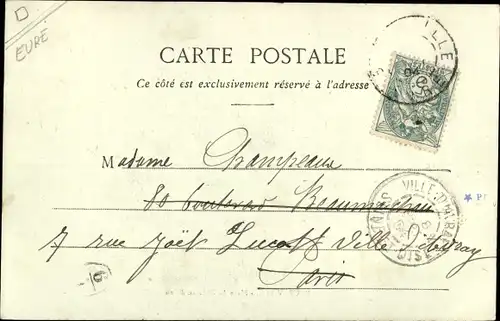 EURE
VILLE
CARTE POSTALE
Ce côté est exclusivement réservé à l'adresse
Madame Champeaux
80 boulevard Beaumarchais
7 rue Joël Ville d'Avray
Paris
VILLE-D'AVRAY
6